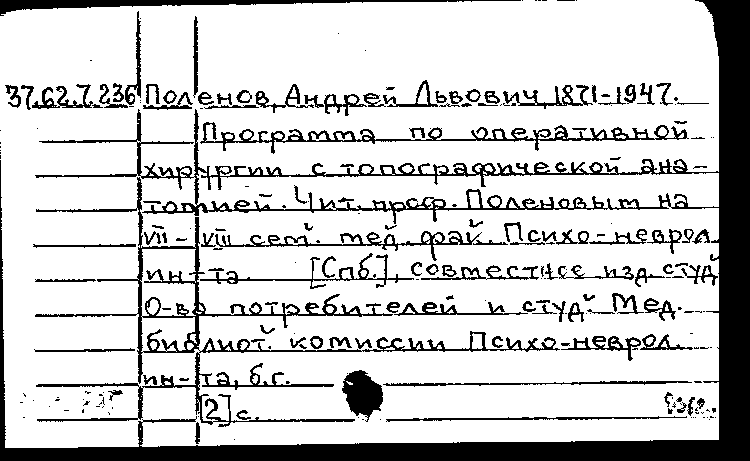 37.62.7.236 Поленов, Андрей Львович, 1871-1947.
Программа по оперативной
хирургии с топографической ана-
томией. Чит. проф. Поленовым на
VII-VIII семй. мед. фак. Психо-неврол
ин-та. [Спб.], совместное изд. студй
О-ва потребителей и студй. Мед.
библиотй. комиссии Психо-неврол.
ин-та, б.г.
[2] с.